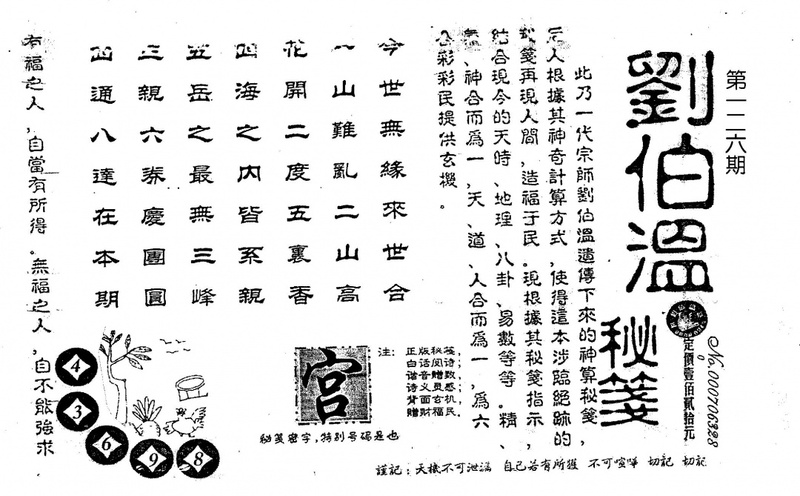 第一二六期
劉伯溫
秘笺
No.000700328
定價壹佰貳拾元
此乃一代宗師劉伯溫遺傳下來的神算秘笺,
根據其神奇計算方式,使得這本涉臨絕跡的
秘笺再現人間,造福于民。現根據其秘笺指示,
結合現今的天時、地理、八卦、易數等等。精、
、神合而爲一,天、道、人合而爲一,爲六
合彩彩民提供玄機。
今世無緣來世合
一山難亂二山高
花開二度五裏香
四海之内皆系親
五岳之最無三峰
三親六券慶團圓
四通八達在本期
有福之人,自當有所得。無福之人,自不能強求
注:正版秘笺,
白话阅诗;
谐音赠数
诗义灵感
背面古机,
赠财福民。
宫
秘笺密字,特别号码是也
4
3
6
9
8
謹記:天機不可泄漏 自己若有所獲 不可喧嘩 切記 切記